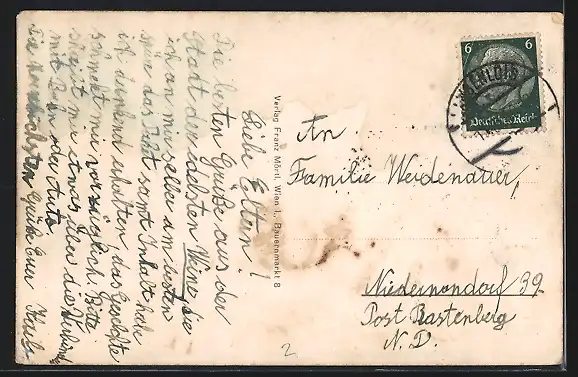 Liebe Eltern!
Die besten Grüße aus der
Stadt der edelsten Weine, die
ich an mir selber am besten
spüre das Paket samt Inhalt habe
ich dankend erhalten das Geselchte
schmeckt mir vorzüglich. Bitte
mir etwas über die
mit Bahn oder Auto
Die herzlichsten Grüße Euer Karl
Verlag Franz Mörtl, Wien I., Bauernmarkt 8
6 6
Deutsches Reich
LANGENLOIS
An
Familie Weidenauer,
Niedernondorf 39
Post Rastenberg
N. D.
2